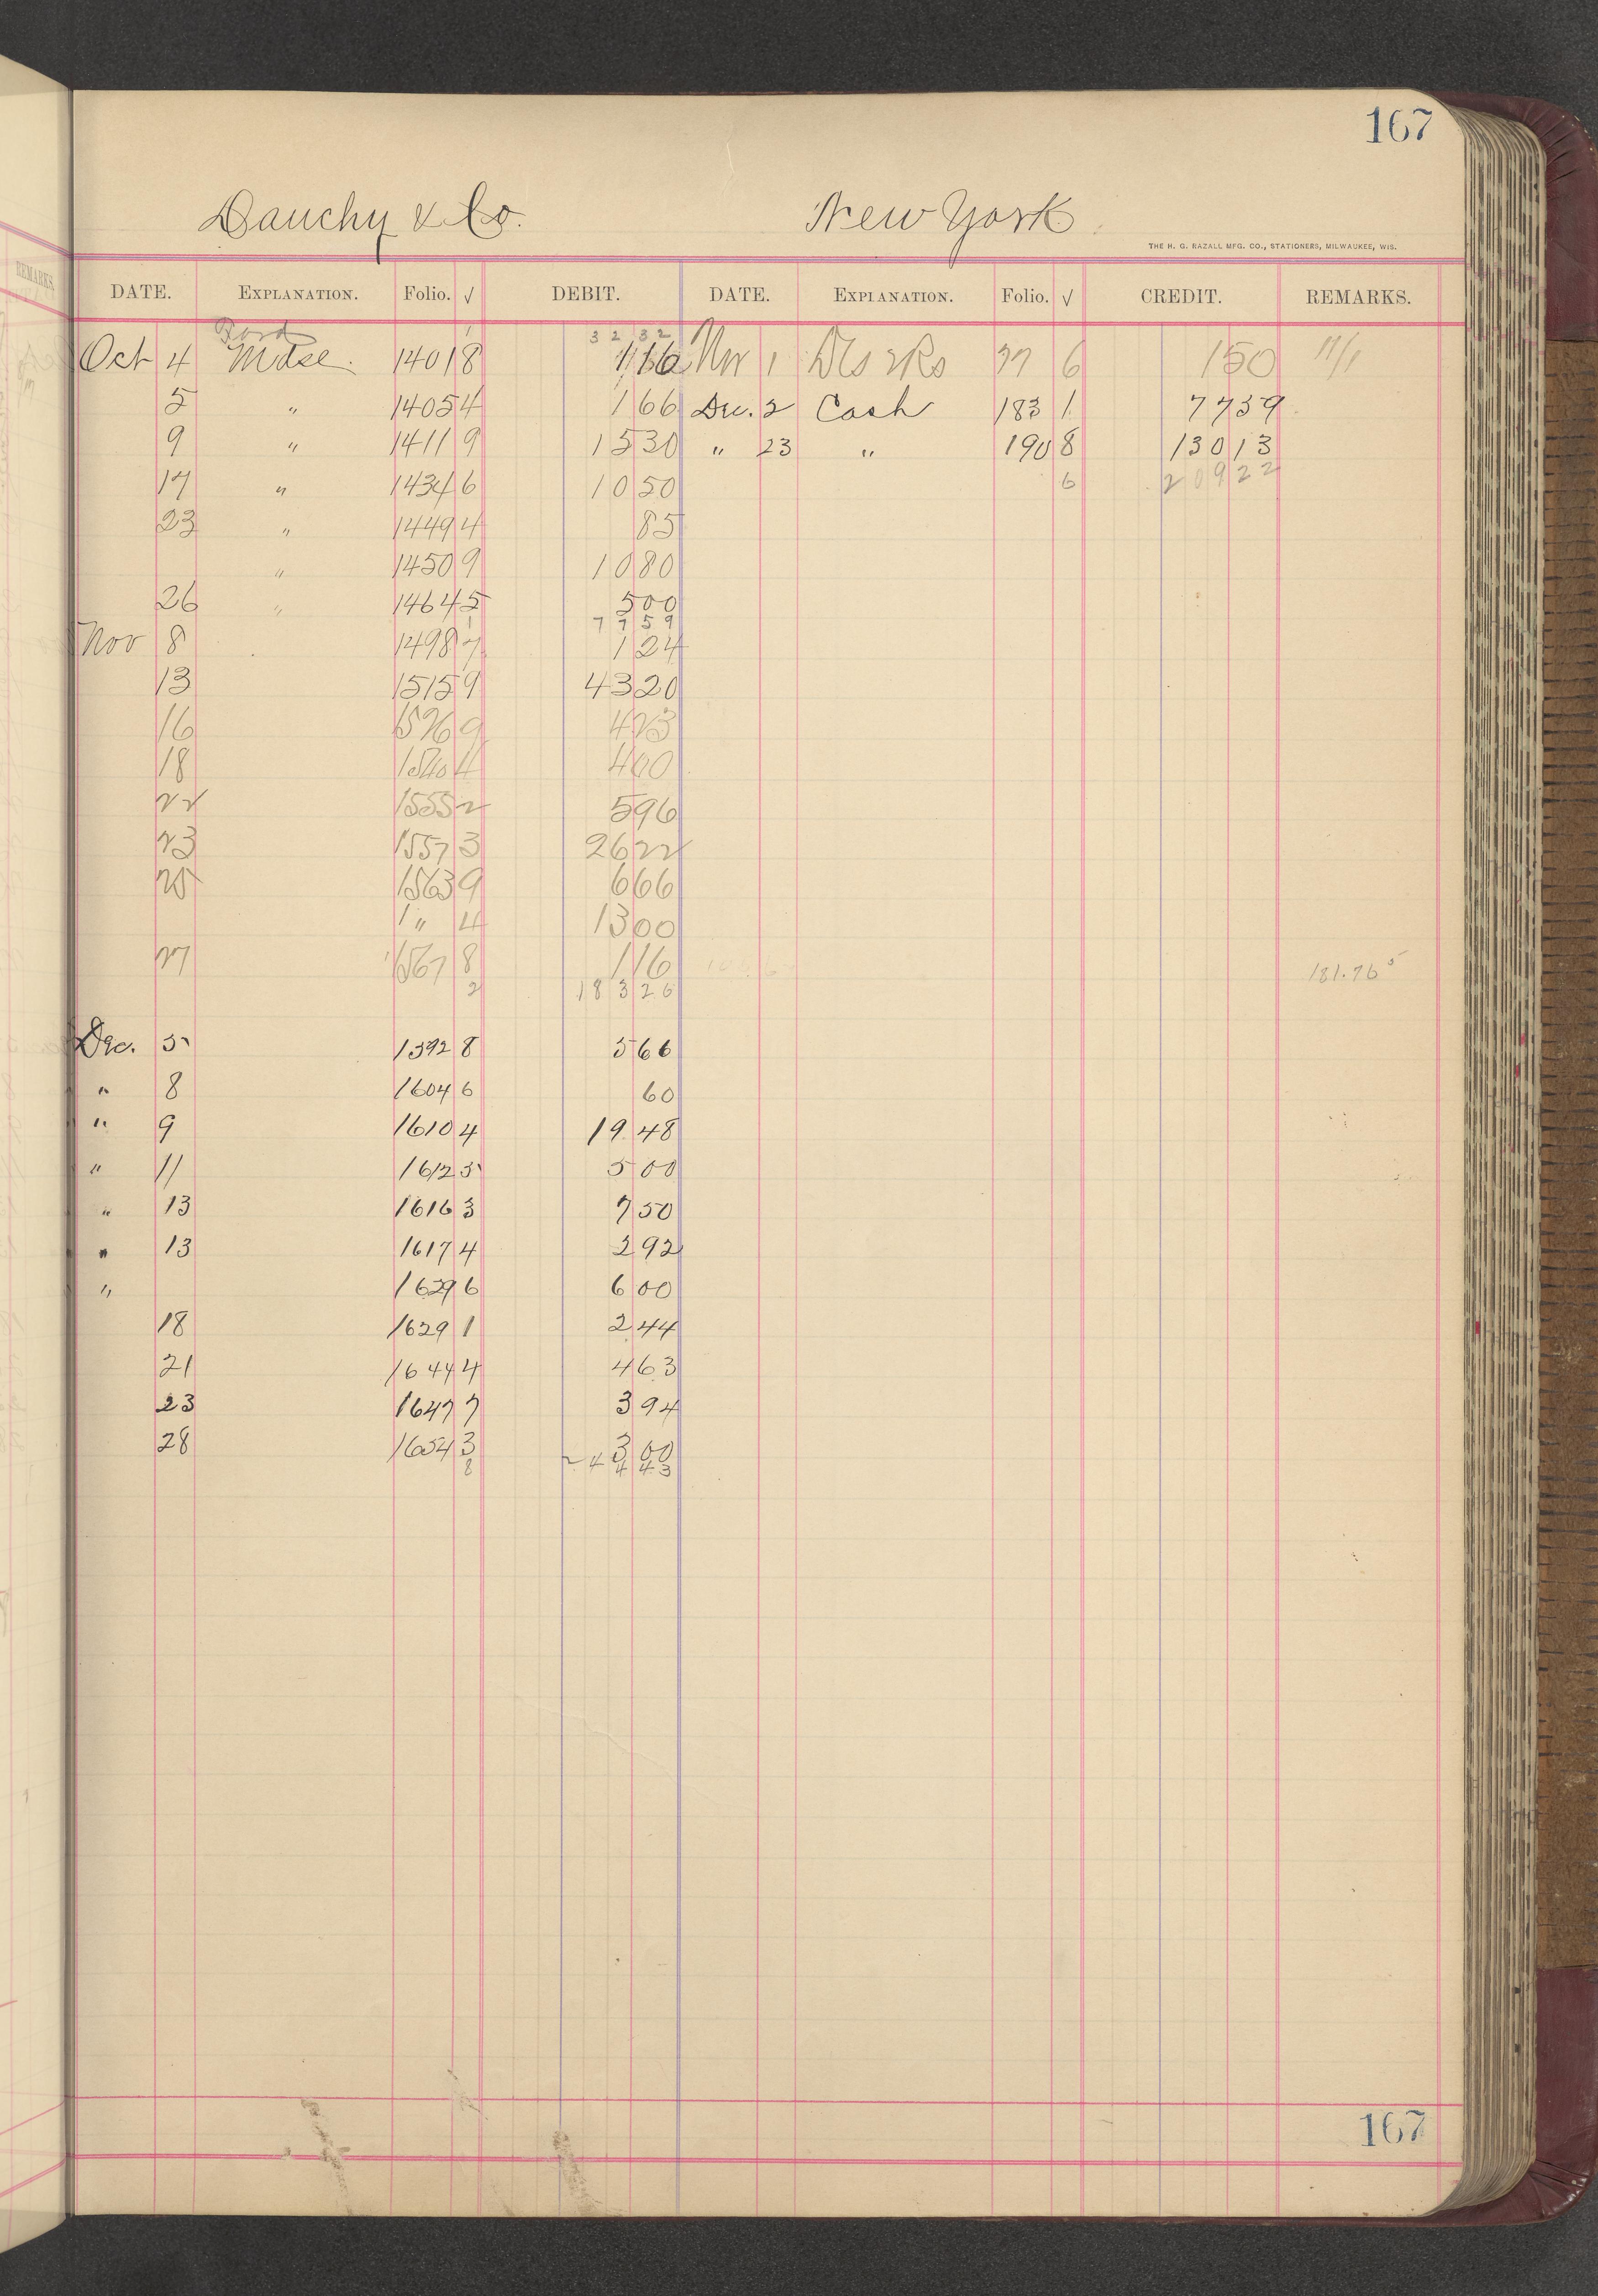 167
Dauchy & Co. New York
THE H. G. RAZALL MFG. CO., STATIONERS, MILWAUKEE, WIS.
REMARKS.
DATE. EXPLANATION. Folio. √ DEBIT. DATE. EXPLANATION. Folio. √ CREDIT. REMARKS.
1 32 32
Oct 4 Mdse. 1401 8 1 16 Nov 1 77 6 1 50 11/1
5 " 1405 4 1 66 Dec. 2 Cash 183 1 77 39
9 " 1411 9 15 30 " 23 " 190 8 130 13
17 " 1434 6 10 50 6 209 22
23 " 1449 4 85
" 1450 9 10 80
26 " 1464 5 5 00
1 77 59
Nov 8 1498 7 1 24
13 1515 9 43 20
16 1526 9 4 23
18 1540 4 4 00
22 1555 2 5 96
23 1557 3 26 22
25 1563 9 6 66
1 " 4 13 00
27 1567 8 1 16 181.76 5
2 183 26
Dec. 5 1592 8 5 66
" 8 1604 6 60
" 9 1610 4 19 48
" 11 1612 5 5 00
" 13 1616 3 7 50
" 13 1617 4 2 92
" 1629 6 6 00
18 1629 1 2 44
21 1644 4 4 63
23 1647 7 3 94
28 1654 3 3 00
8 244 43
167